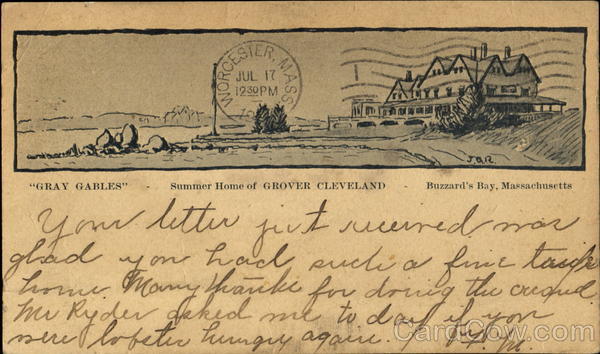 WORCESTER, MASS.
JUL 17
12 30 PM
J.G.R.
"GRAY GABLES" - Summer Home of GROVER CLEVELAND - Buzzard's Bay, Massachusetts
Your letter just received was
glad you had such a fine
home. Many thanks for doing the
Mr Ryder asked me to day if you
were lobster hungry again.
CardCow.com